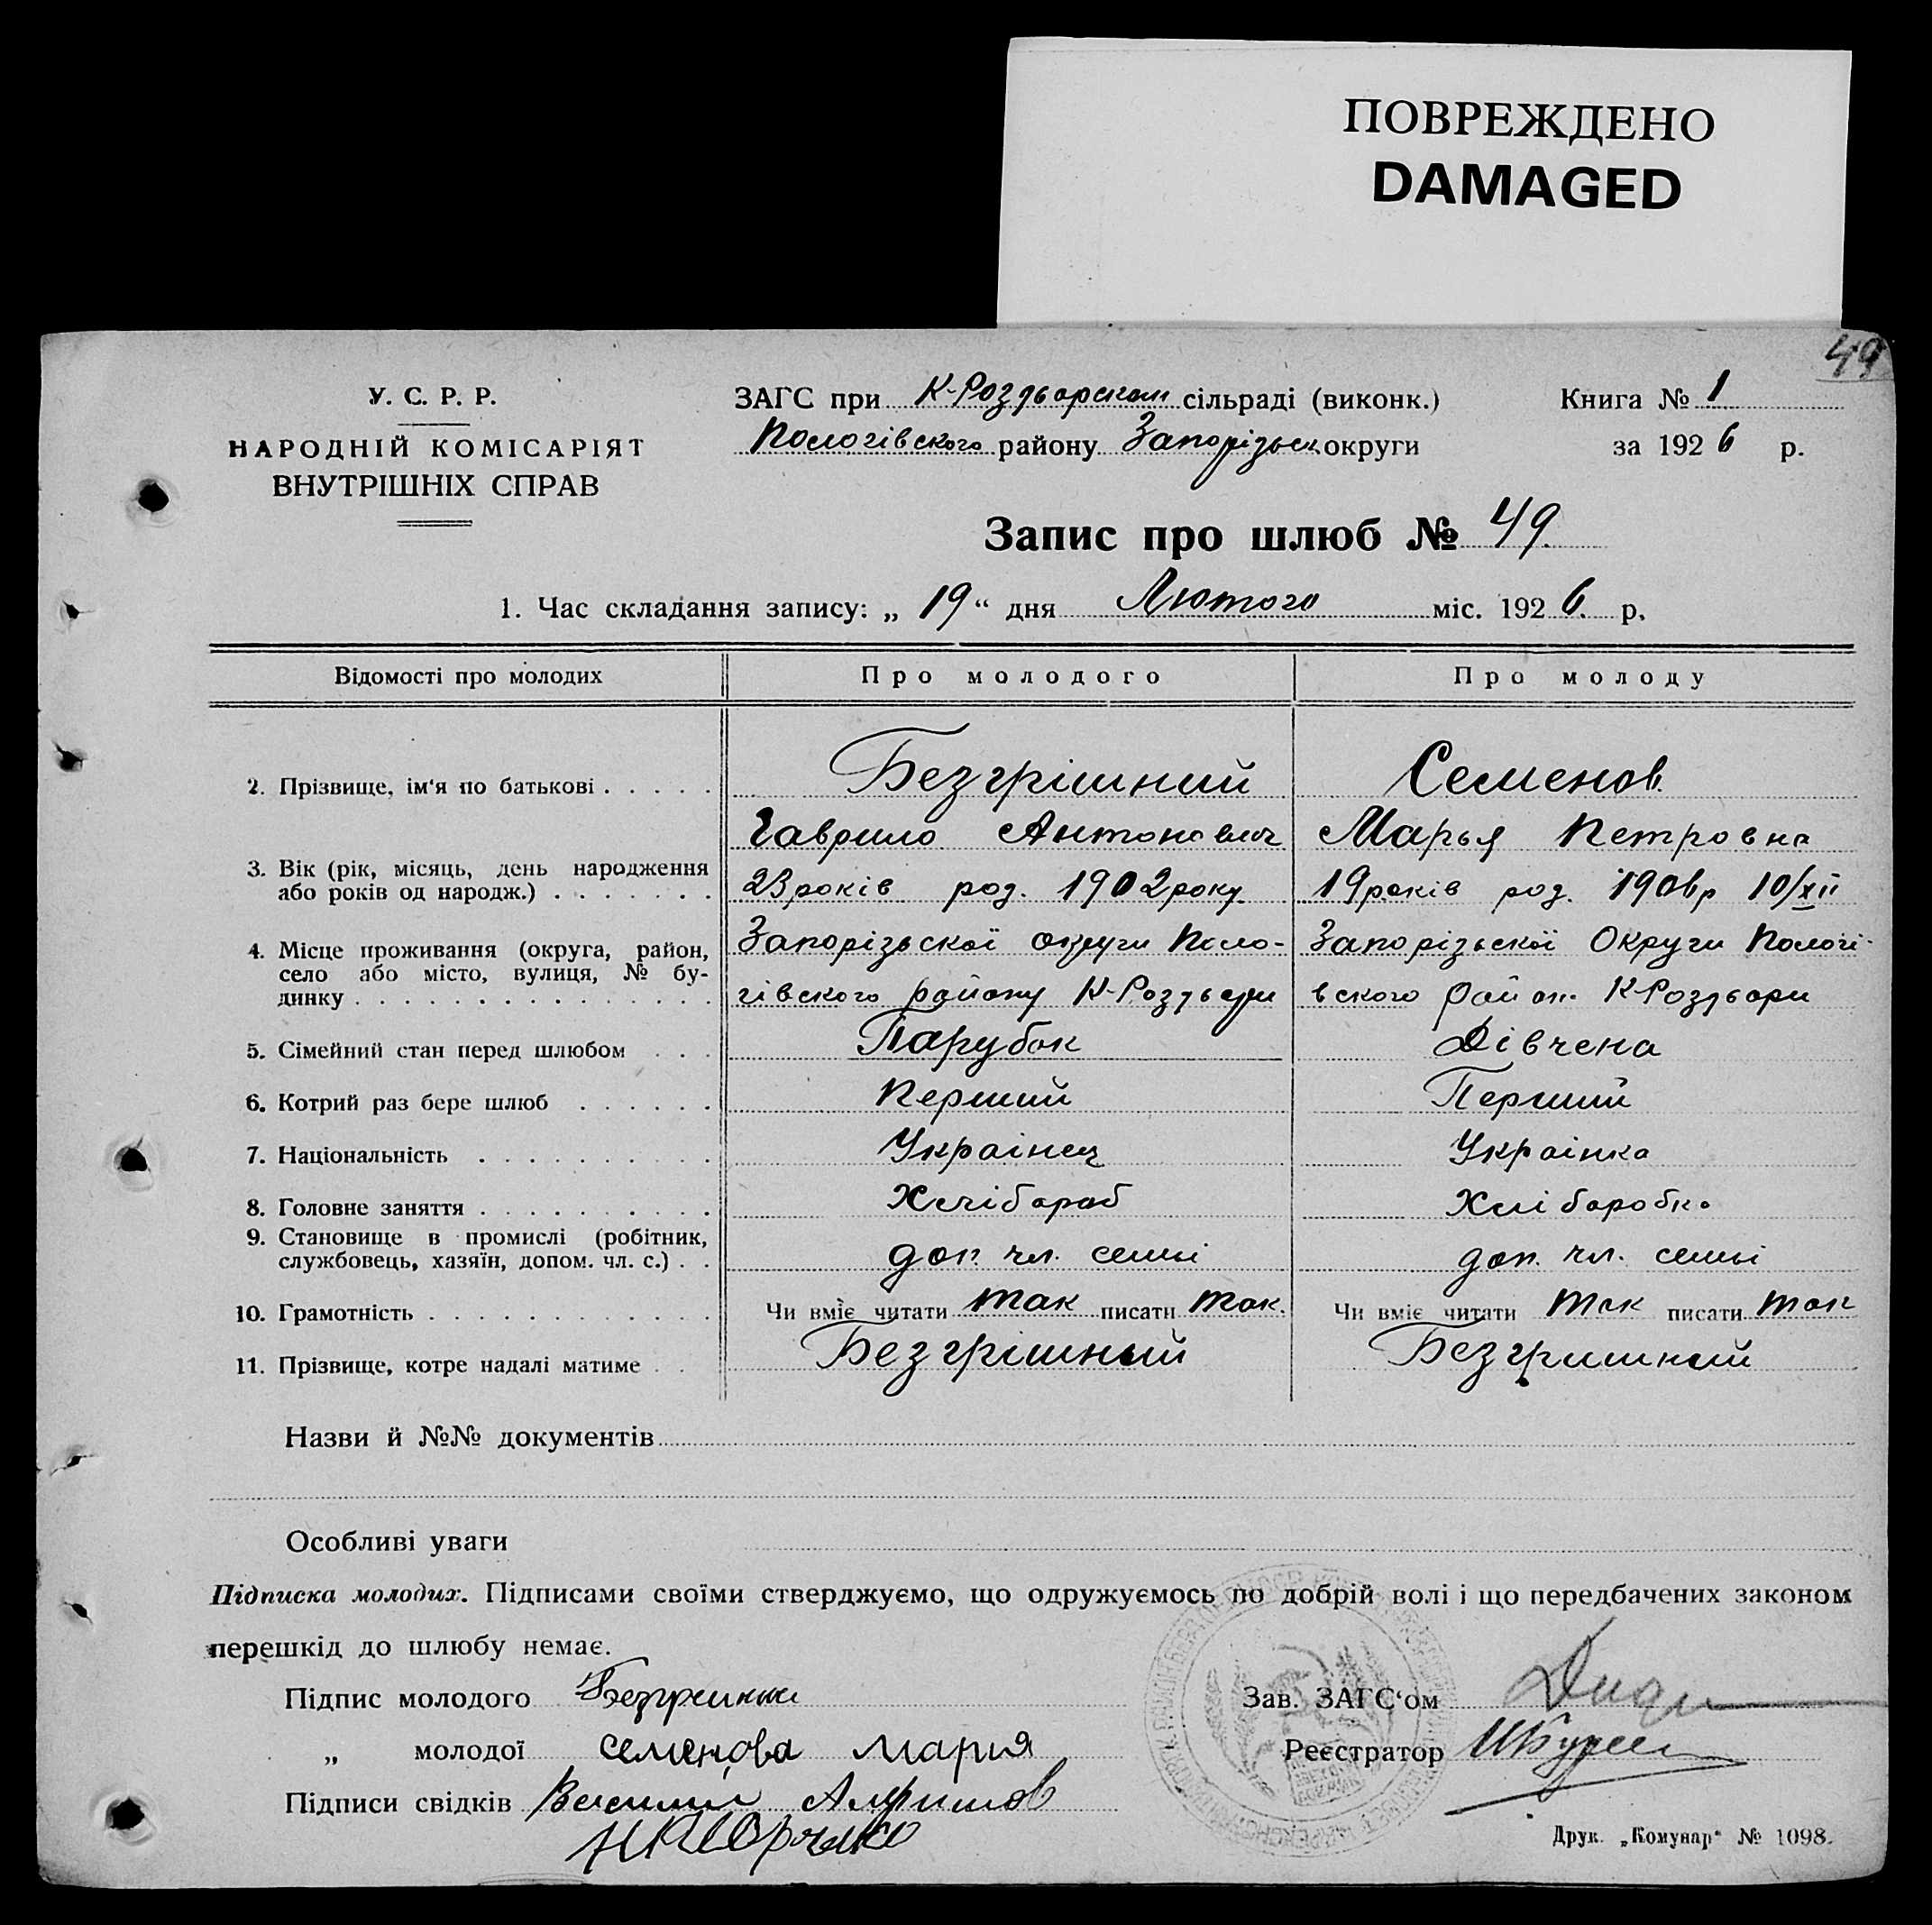 ПОВРЕЖДЕНО
DAMAGED
49
У. С. Р. Р.
НАРОДНІЙ КОМІСАРІЯТ
ВНУТРІШНІХ СПРАВ
ЗАГС при К-Роздорском сільраді (виконк.)
Пологівского району Запорізьк округи
Книга № 1
за 1926 р.
Запис про шлюб № 49.
1. Час складання запису: „ 19 “ дня Лютого міс. 1926. р.
Відомості про молодих Про молодого Про молоду
2. Прізвище, ім‘я по батькові . . . . . Безгрішний Семенов.
Гаврило Антонович Марья Петровна
3. Вік (рік, місяць, день народження
або років од народж.) . . . . . . . 23 років род. 1902 року 19 років род. 1906 р 10/XII
4. Місце проживання (округа, район, Запорізьскої округи Поло- Запорізьскої Округи Пологі-
село або місто, вулиця, № бу-
динку . . . . . . . . . . . . . . . гівского району К-Роздьори вского район. К-Роздьори
5. Сімейний стан перед шлюбом . . . Парубок Дівчена
6. Котрий раз бере шлюб . . . . . . Перший Перший
7. Національність . . . . . . . . . . Украінец Украінка
8. Головне заняття . . . . . . . . . . Хлібороб Хліборобка
9. Становище в промислі (робітник,
службовець, хазяїн, допом. чл. с.) . . доп. чл. семьі доп. чл. семьі
10. Грамотність . . . . . . . . . . . . Чи вміє читати так писати так. Чи вміє читати так писати так
11. Прізвище, котре надалі матиме . . Безгрішный Безгришный
Назви й №№ документів
Особливі уваги
Підписка молодих. Підписами своїми стверджуємо, що одружуємось по добрій волі і що передбачених законом
перешкід до шлюбу немає.
Підпис молодого Зав. ЗАГС‘ом
„ молодої семенова мария Реєстратор
Підписи свідків Василий
Друк. „Комунар“ № 1098.